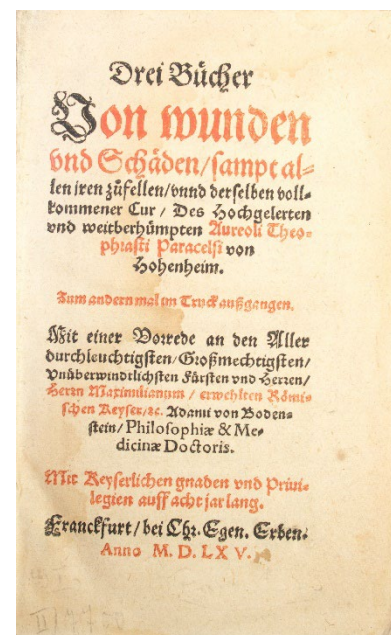 Drei Bücher
Von wunden
vnd Schäden/sampt al-
len jren zůfellen/vnnd derselben voll-
kommener Cur / Des Hochgelerten
vnd weitberhümpten Aureoli Theo-
phrasti Paracelsi von
Hohenheim.
Zum andern mal im Truck außgangen.
Mit einer Vorrede an den Aller
durchleuchtigsten/Großmechtigsten/
Vnüberwindtlichsten Fürsten vnd Herren/
Herrn Maximilianum / erwehlten Römi-
schen Keyser/ꝛc. Adami von Boden-
stein/Philosophiæ & Me-
dicinæ Doctoris.
Mit Keyserlichen gnaden vnd Priui-
legien auff acht jar lang.
Franckfurt/bei Chr. Egen. Erben.
Anno M. D. LXV.